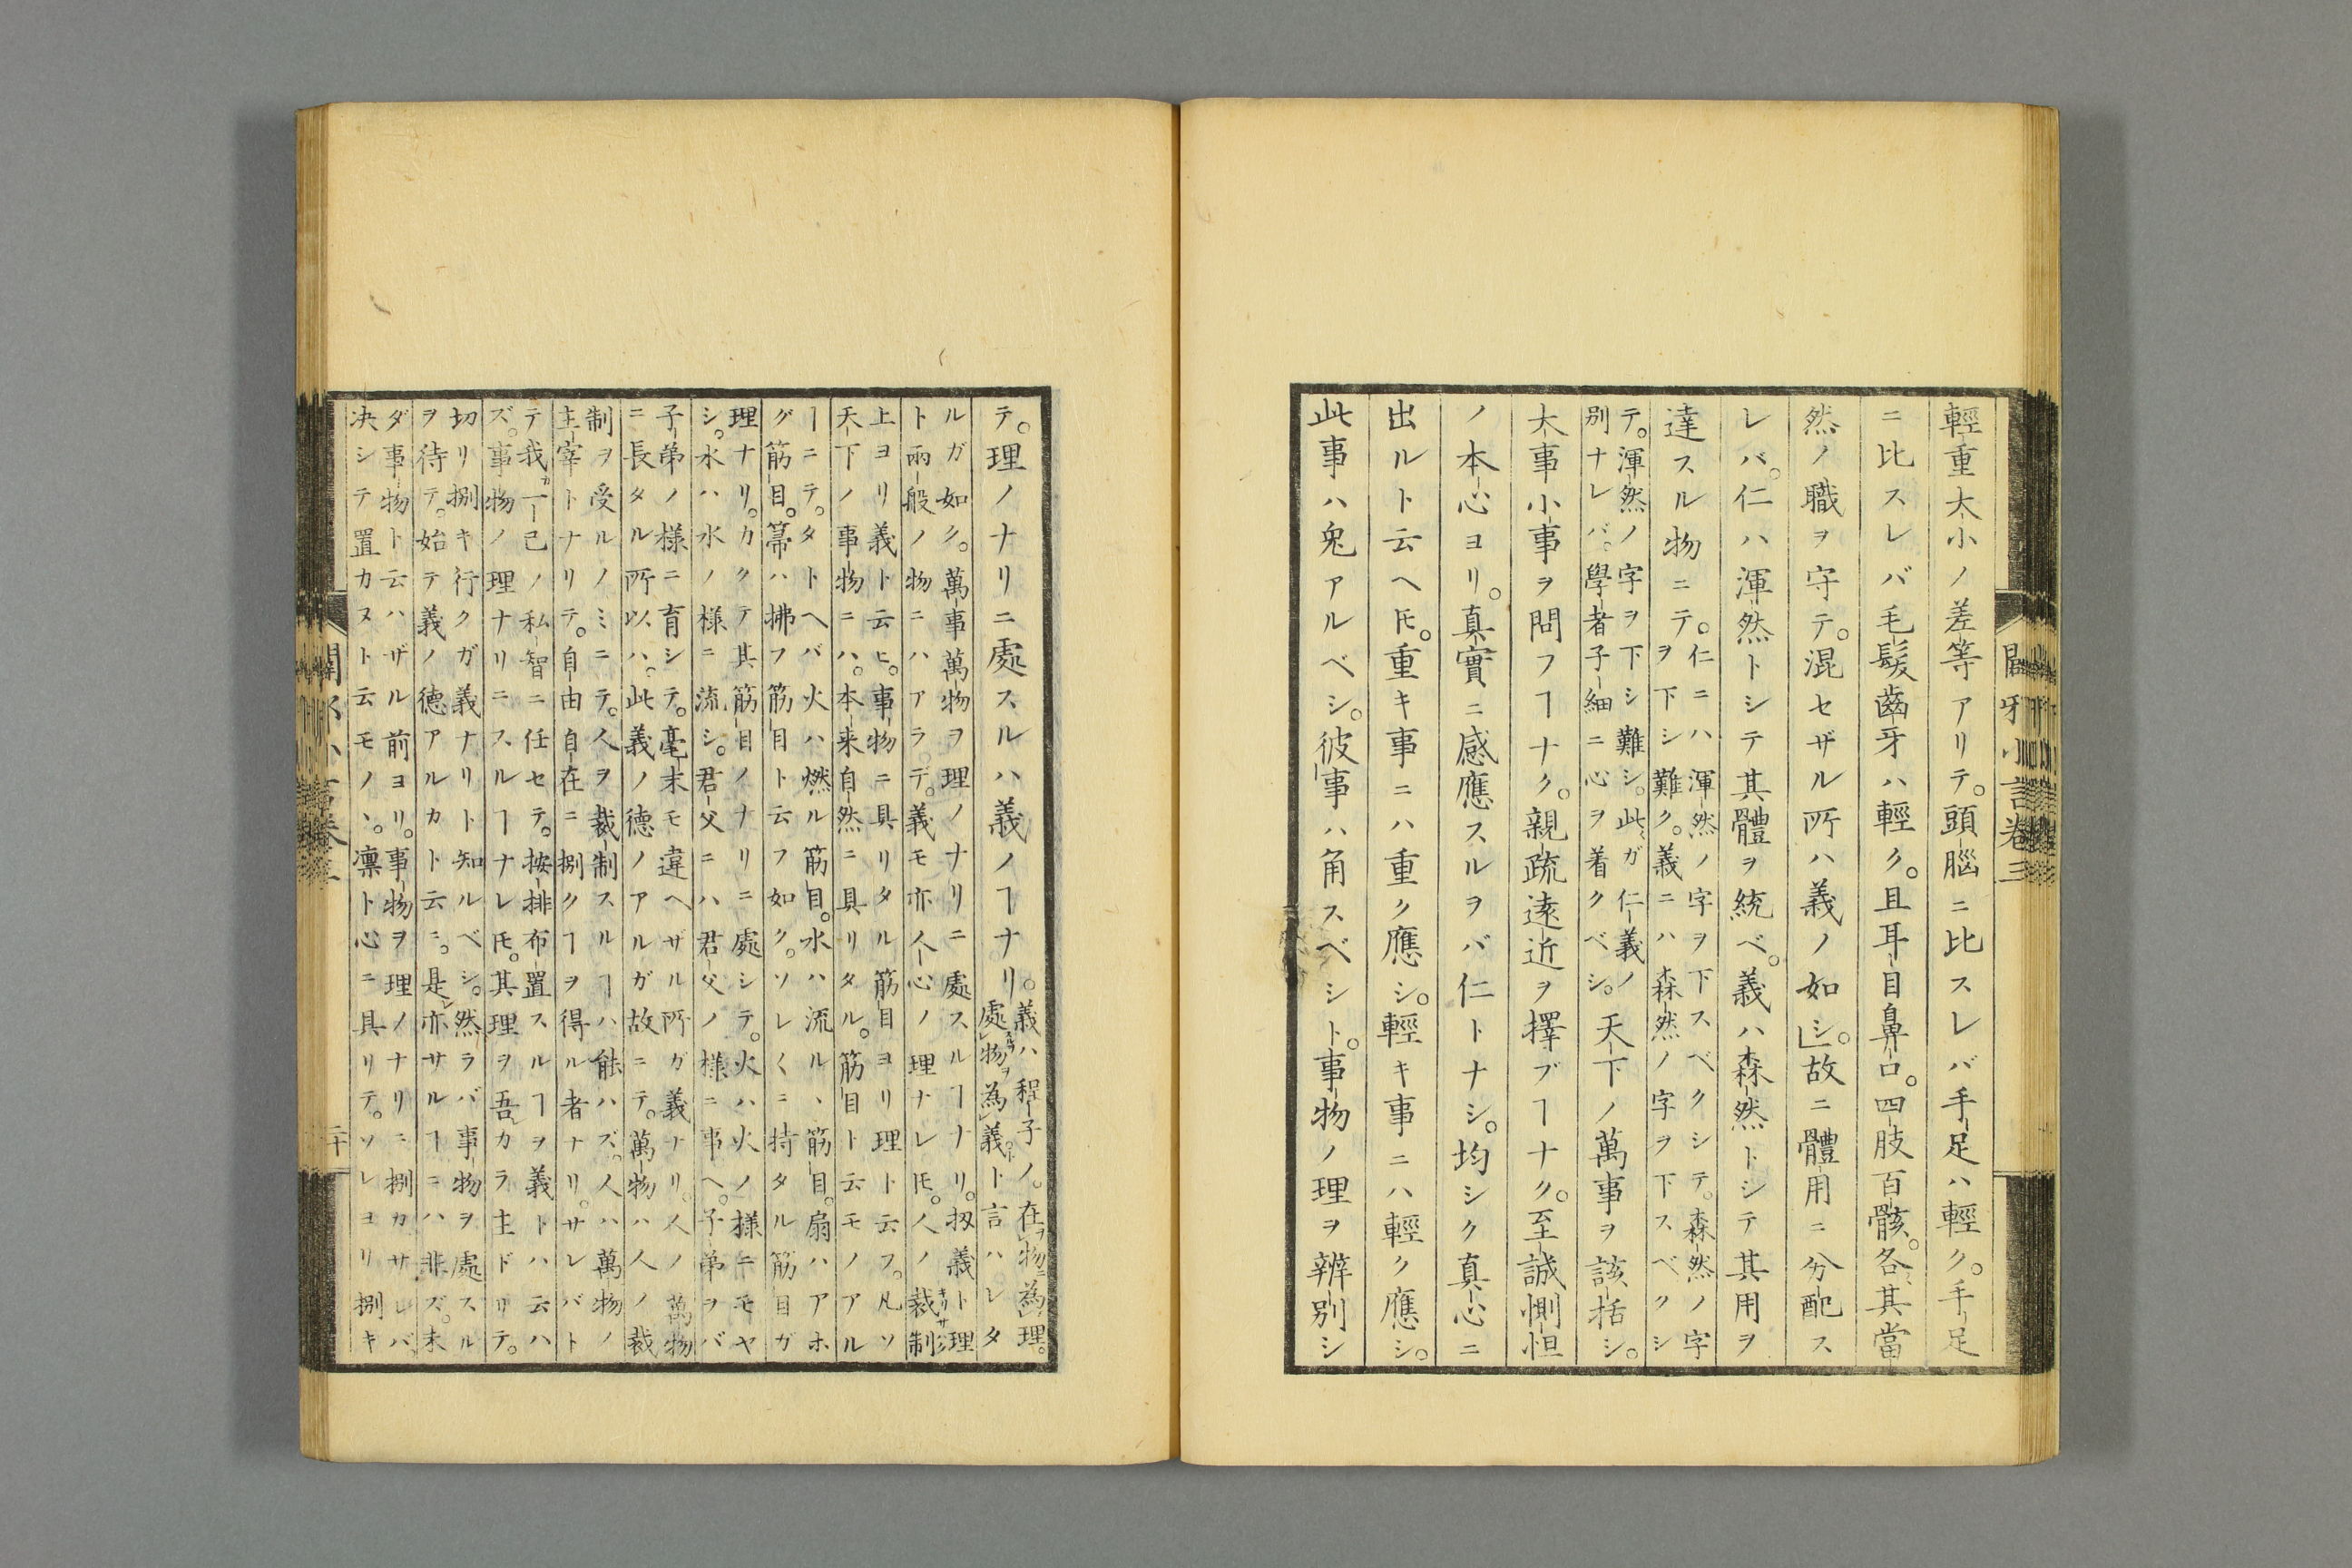 輕重大小ノ差等アリテ。頭腦ニ比スレバ手足ハ輕ク。手足
ニ比スレバ毛髮齒牙ハ輕ク。且耳目鼻口。四肢百骸。各〻其當
然ノ職ヲ守テ。混セザル所ハ義ノ如シ。」故ニ體用ニ分配ス
レバ。仁ハ渾然トシテ其體ヲ統ベ。義ハ森然トシテ其用ヲ
達スル物ニテ。
仁ニハ渾然ノ字ヲ下スベクシテ。森然ノ字
ヲ下シ難ク。義ニハ森然ノ字ヲ下スベクシ
テ。渾然ノ字ヲ下シ難シ。此〻ガ仁義ノ
別ナレバ。學者子細ニ心ヲ着クベシ。
天下ノ萬事ヲ該括シ。
大事小事ヲ問フヿナク。親疏遠近ヲ擇ブヿナク。至誠惻怛
ノ本心ヨリ。真實ニ感應スルヲバ仁トナシ。均シク真心ニ
出ルト云ヘ𪜈。重キ事ニハ重ク應シ。輕キ事ニハ輕ク應シ。
此事ハ兔アルベシ。彼事ハ角スベシト。事物ノ理ヲ辨別シ
小言卷三
テ。理ノナリニ處スルハ義ノヿナリ。
義ハ程子ノ。在物為理。
處物為義ト言ハレタ
ルガ如ク。萬事萬物ヲ理ノナリニ處スルヿナリ。扨義ト理
ト兩般ノ物ニハアラデ。義モ亦人心ノ理ナレ𪜈。人ノ裁制キリサバク
上ヨリ義ト云ヒ。事物ニ具リタル筋目ヨリ理ト云フ。凡ソ
天下ノ事物ニハ。本来自然ニ具リタル。筋目ト云モノアル
ヿニテ。タトヘバ火ハ燃ル筋目。水ハ流ル丶筋目。扇ハアホ
グ筋目。箒ハ拂フ筋目ト云フ如ク。ソレ〱ニ持タル筋目ガ
理ナリ。カクテ其筋目ノナリニ處シテ。火ハ火ノ様ニモヤ
シ。水ハ水ノ様ニ流シ。君父ニハ君父ノ様ニ事ヘ。子弟ヲバ
子弟ノ様ニ育シテ。毫末モ違ヘザル所ガ義ナリ。人ノ萬物
ニ長タル所以ハ。此義ノ德ノアルガ故ニテ。萬物ハ人ノ裁
制ヲ受ルノミニテ。人ヲ裁制スルヿハ能ハズ。人ハ萬物ノ
主宰トナリテ。自由自在ニ捌クヿヲ得ル者ナリ。サレバト
テ我ガ一己ノ私智ニ任セテ。按排布置スルヿヲ義トハ云ハ
ズ。事物ノ理ナリニスルヿナレ𪜈。其理ヲ吾カラ主ドリテ。
切リ捌キ行クガ義ナリト知ルベシ。然ラバ事物ヲ處スル
ヲ待テ。始テ義ノ德アルカト云ニ。是亦サルヿニハ非ズ。未
ダ事物ト云ハザル前ヨリ。事物ヲ理ノナリニ捌カサレバ
决シテ置カヌト云モノヽ。凛ト心ニ具リテ。ソレヨリ捌キ
二十